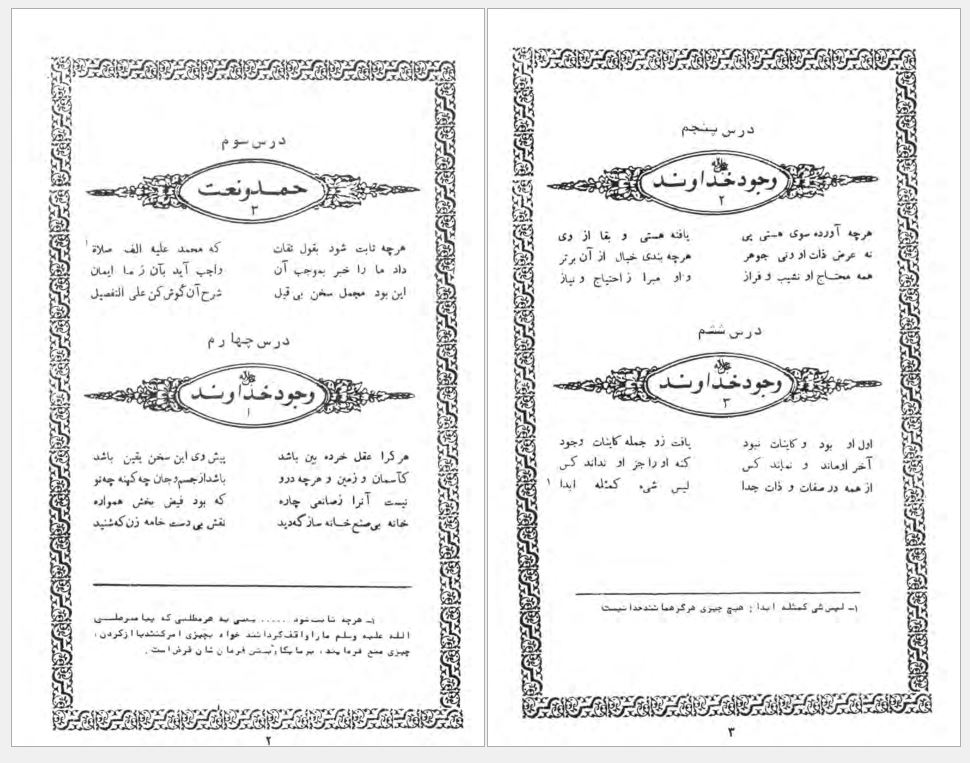 درس سوم
حمد و نعت
۳
هرچه ثابت شود بقول ثقات    که محمد علیه الف صلاة ۱
داد ما را خبر بموجب آن    واجب آید بآن ز ما ایمان
این بود مجمل سخن بی قیل    شرح آن گوش کن علی التفصیل
درس چهارم
وجود خداوند
۱
هر کرا عقل خرده بین باشد    پیش وی این سخن یقین باشد
کآسمان و زمین و هرچه درو    باشد از جسم و جان چه کهنه چه نو
نیست آنرا ز صانعی چاره    که بود فیض بخش همواره
خانه بی صنع خانه ساز که دید    نقش بی دست خامه زن که شنید
۱ـ هرچه ثابت شود ...... یعنی به هر مطلبی که پیامبر صلی
الله علیه وسلم ما را واقف گردانند خواه بچیزی امر کنند یا از کردن
چیزی منع فرمایند، فرمان شان فرض است.
۲
درس پنجم
وجود خداوند
۲
هرچه آورده سوی هستی پی    یافته هستی و بقا از وی
نه عرض ذات او و نی جوهر    هرچه بندی خیال از آن برتر
همه محتاج او نشیب و فراز    و او مبرا ز احتیاج و نیاز
درس ششم
وجود خداوند
۳
اول او بود و کاینات نبود    یافت زو جمله کاینات وجود
آخر او ماند و نماند کس    کنه او را جز او نداند کس
از همه در صفات و ذات جدا    لیس شیء کمثله ابدا ۱
۱ـ لیس شی کمثله ابدا : هیچ چیزی هرگز همانند خدا نیست
۳